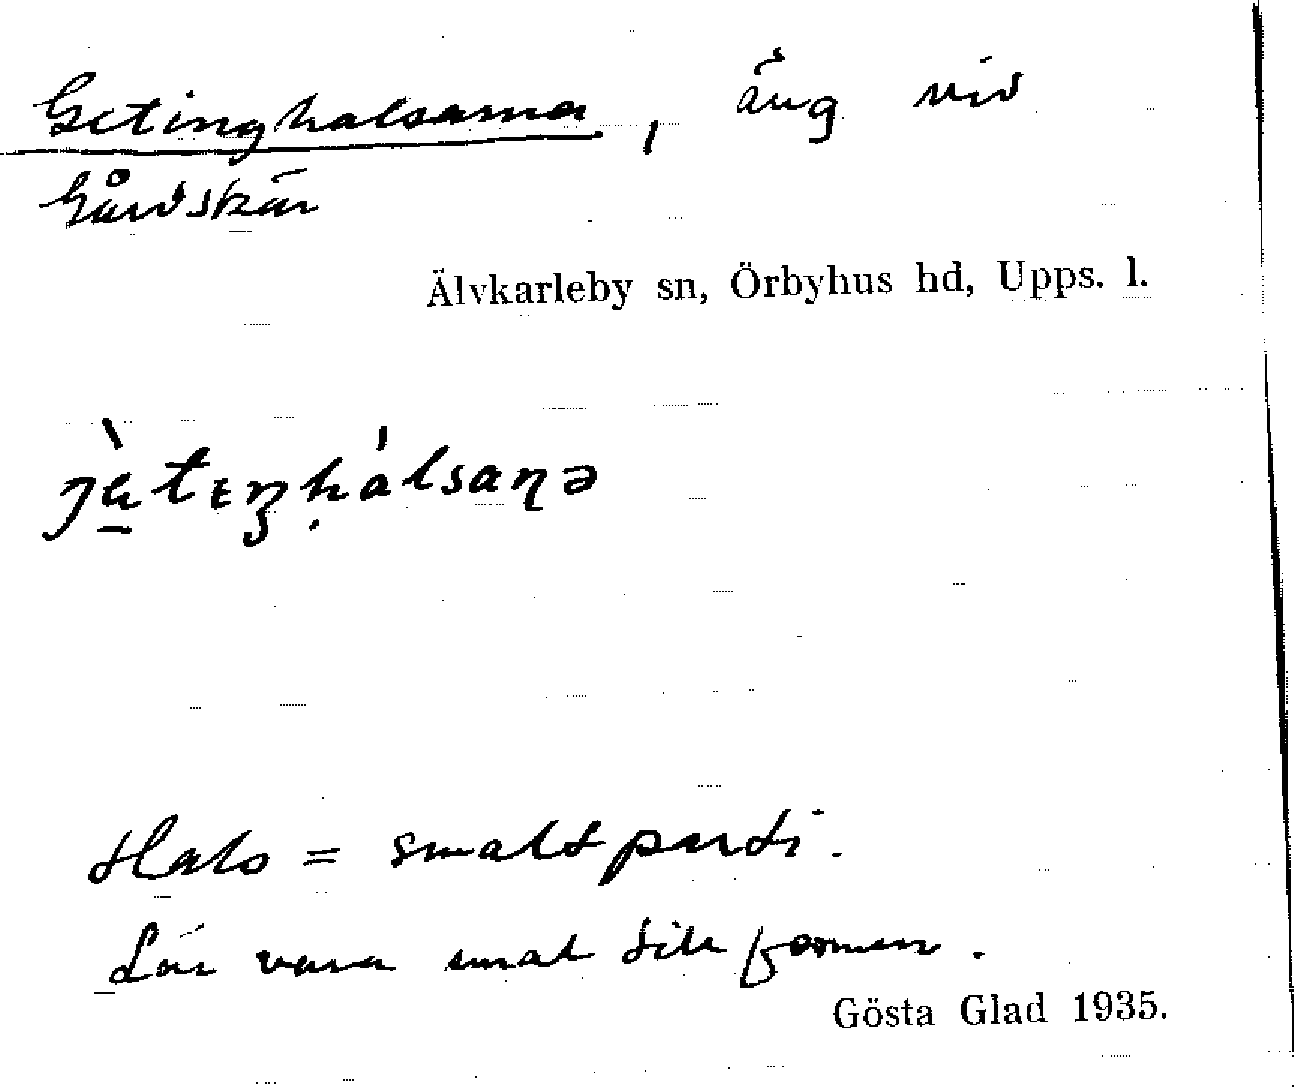 Getinghalsarna, äng vid
Gårdskär
Älvkarleby sn, Örbyhus hd, Upps. l.
Hals = smalt parti.
Lär vara smal till formen.
Gösta Glad 1935.